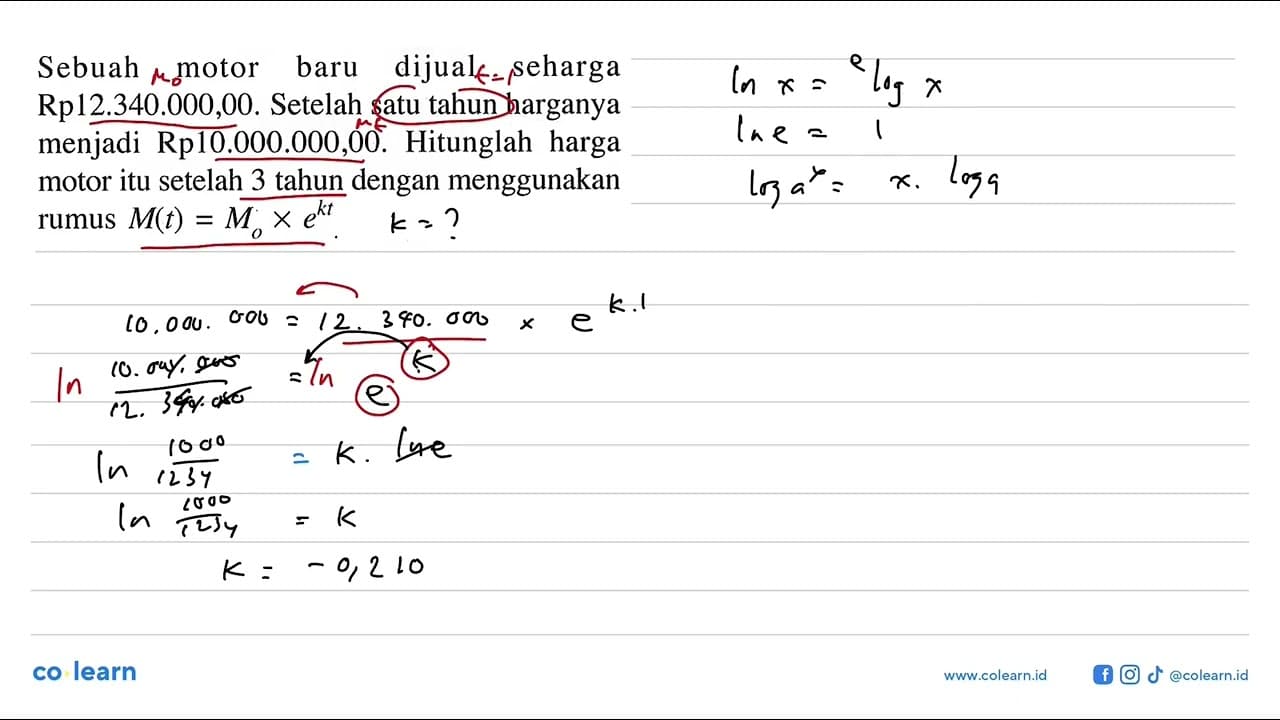 Sebuah motor baru dijual seharga
M₀ t=1
Rp12.340.000,00. Setelah satu tahun harganya
Mt
menjadi Rp10.000.000,00. Hitunglah harga
motor itu setelah 3 tahun dengan menggunakan
rumus M(t) = M₀ × e^kt. k = ?
ln x = ᵉlog x
ln e = 1
log aˣ = x. log a
10.000.000 = 12.340.000 × e^k.1
ln 10.000.000/12.340.000 = ln e^k
ln 1000/1234 = k. ln e
ln 1000/1234 = k
k = -0,210
co learn
www.colearn.id @colearn.id